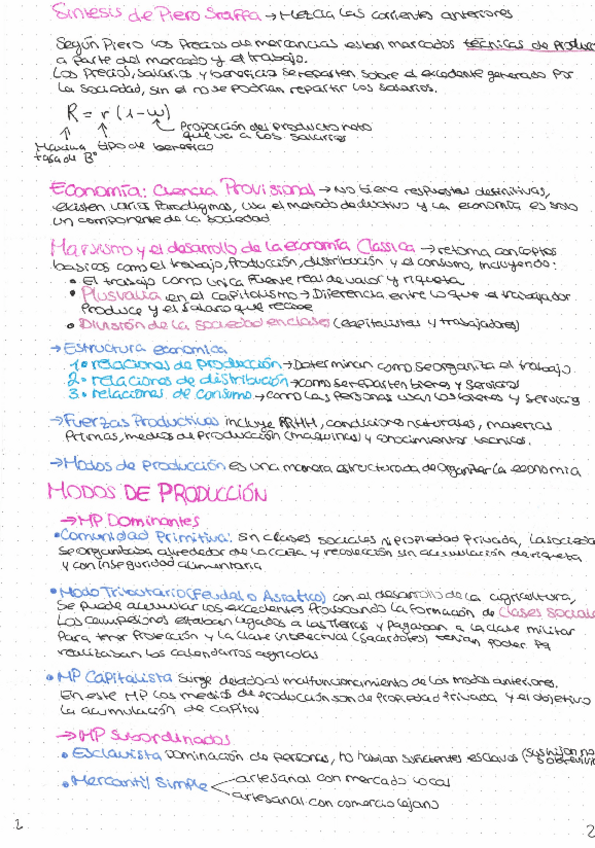 Síntesis de Piero Sraffa → Mezcla las corrientes anteriores
Según Piero los Precios de mercancías estan marcados técnicas de Produc
a parte del mercado y el trabajo.
Los Precios, Salarios y beneficio se reparten sobre el excedente generado por
la sociedad, sin el no se podrían repartir los salarios.
R = r (1-w)
Proporción del producto neto
que va a los salarios
Maxima tipo de beneficio
tasa de Bº
Economía: Ciencia Provisional → No tiene respuestas definitivas,
existen varios Paradigmas, usa el metodo deductivo y la economía es solo
un componente de la sociedad
Marxismo y el desarrollo de la economía Classica → retoma conceptos
basicos como el trabajo, Producción, distribución y el consumo, incluyendo:
• El trabajo como unica fuente real de valor y riqueza
• Plusvalía en el capitalismo → Diferencia entre lo que el trabajador
Produce y el salario que recibe
• División de la sociedad en clases (capitalistas y trabajadores)
→ Estructura economica
1• relaciones de producción → Determinan como se organiza el trabajo.
2• relaciones de distribución → como se reparten bienes y servicios
3• relaciones de consumo → como las personas usan los bienes y servicios
→ Fuerzas Productivas incluye RRHH, condiciones naturales, materias
Primas, medios de Producción (maquinas) y conocimientos tecnicos.
→ Modos de Producción es una manera estructurada de organizar la economía
MODOS DE PRODUCCIÓN
→ MP Dominantes
• Comunidad Primitiva: Sin clases sociales ni propiedad Privada, la socieda
se organizaba alrededor de la caza y recolección sin acumulación de riqueza
y con inseguridad alimentaria
• Modo Tributario (Feudal o Asiatico) con el desarrollo de la agricultura,
Se puede acumular los excedentes Provocando la formación de clases sociale
Los campesinos estaban ligados a las tierras y Pagaban a la clase militar
Para tener Protección y la clase intelectual (sacerdotes) tenian poder Pq
realizaban los calendarios agricolas
• MP Capitalista surge debido al malfuncionamiento de los modos anteriores.
En este MP los medios de producción son de propiedad Privada y el objetivo
la acumulación de capital
→ MP Subordinados
• Esclavista Dominación de personas, no habian suficientes esclavos (sus hijos no
sobrevivi
• Mercantil Simple artesanal con mercado local
artesanal con comercio lejano
1
2